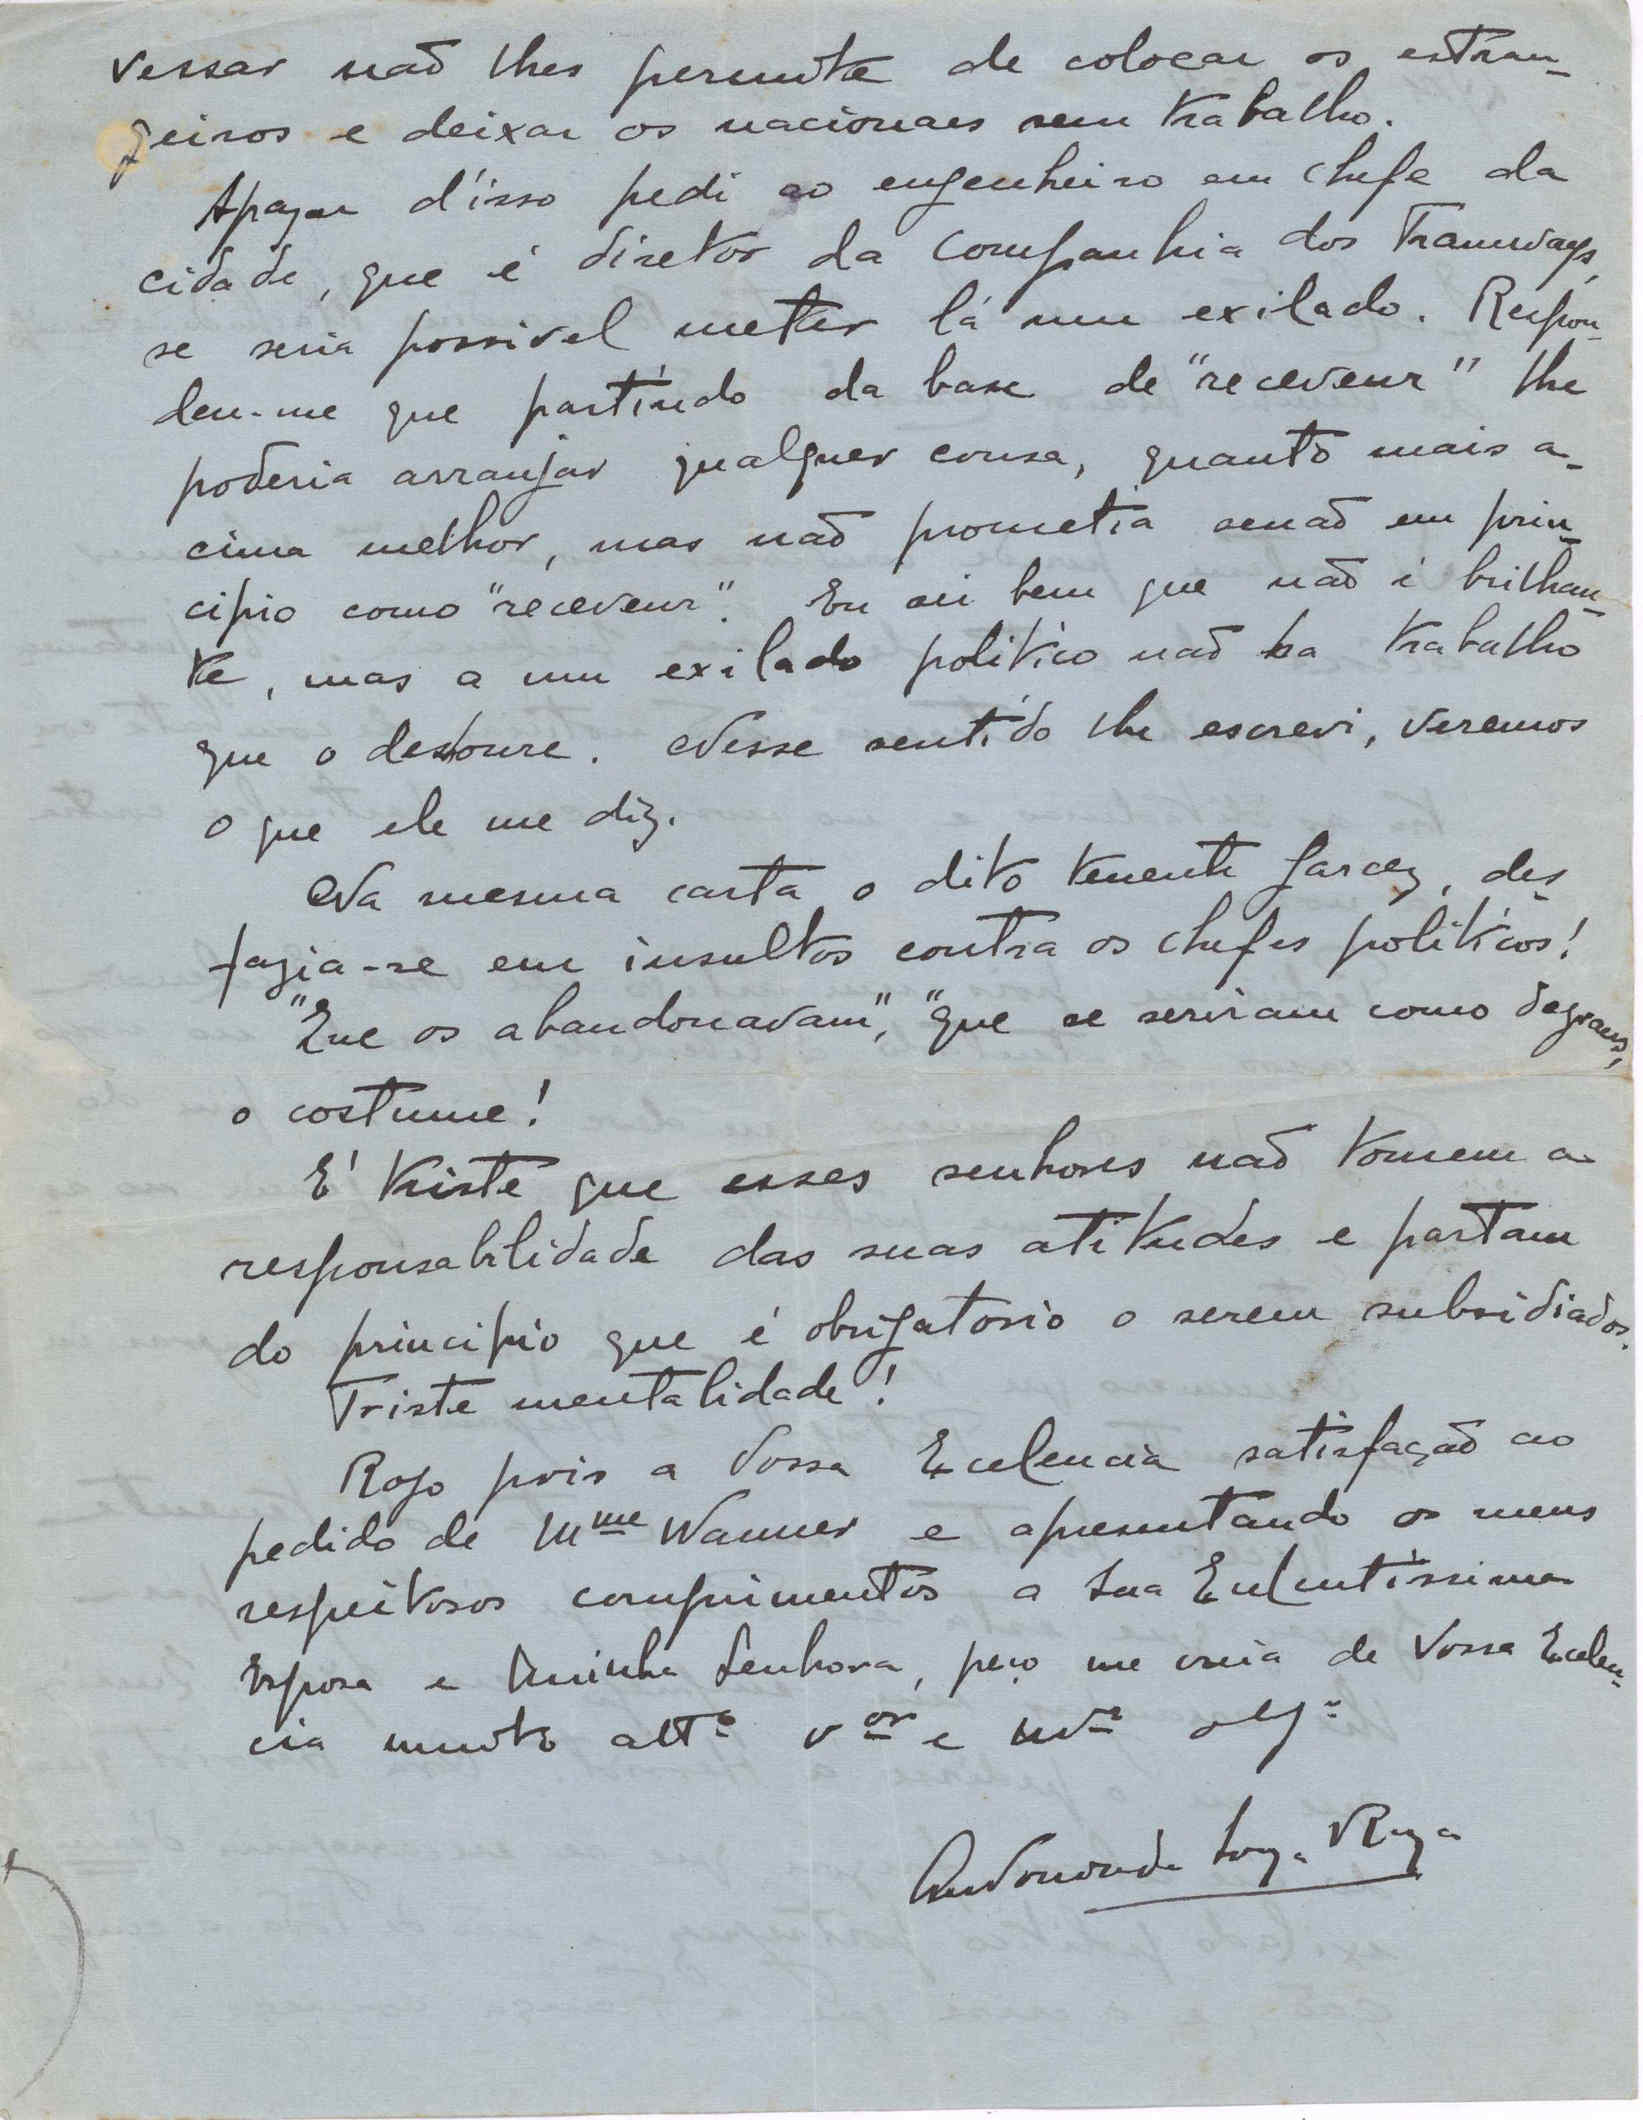 vessar não lhes permite de colocar os estran-
geiros e deixar os nacionaes sem trabalho.
Apazar d'isso pedi ao engenheiro em chefe da
cidade, que é diretor da Companhia dos Tramways,
se seria possivel meter lá um exilado. Respon-
deu-me que partindo da base de "receveur" lhe
poderia arranjar qualquer cousa, quanto mais a-
cima melhor, mas não prometia senão em prin-
cipio como "receveur". Eu sei bem que não é brilhan-
te, mas a um exilado politico não ha trabalho
que o desdoure. Nesse sentido lhe escrevi, veremos
o que ele me diz.
Na mesma carta o dito tenente Garcez, des-
fazia-se em insultos contra os chefes politicos!
"Que os abandonavam", "que se serviam como degraus,
o costume!
E' triste que esses senhores não tomem a
responsabilidade das suas atitudes e partam
do principio que é obrigatorio o serem subsidiados.
Triste mentalidade!
Rogo pois a Vossa Excelencia satisfação ao
pedido de Mme Wanner e apresentando os meus
respeitosos comprimentos a Sua Excelentissima
Esposa e Minha Senhora, peço me creia de Vossa Excelen-
cia muito attº vor e mtº obgº